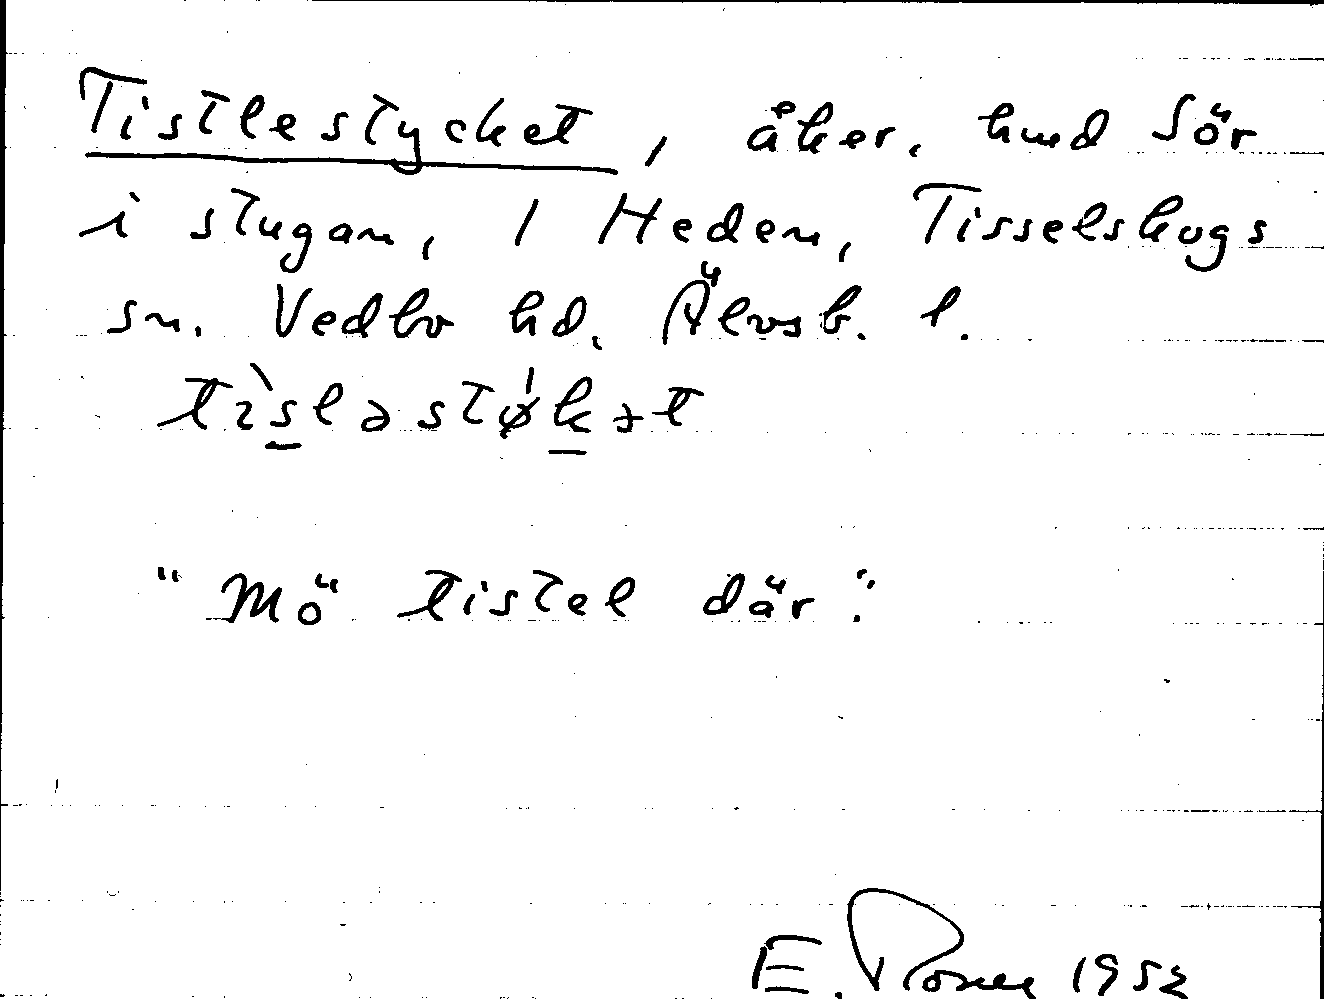 Tistlestycket, åker, hmd Sör
i stugan, 1 Heden, Tisselskogs
sn. Vedbo hd. Älvsb. l.
tìsləstø̍kət
"Mö tistel där".
E. Rosen 1952